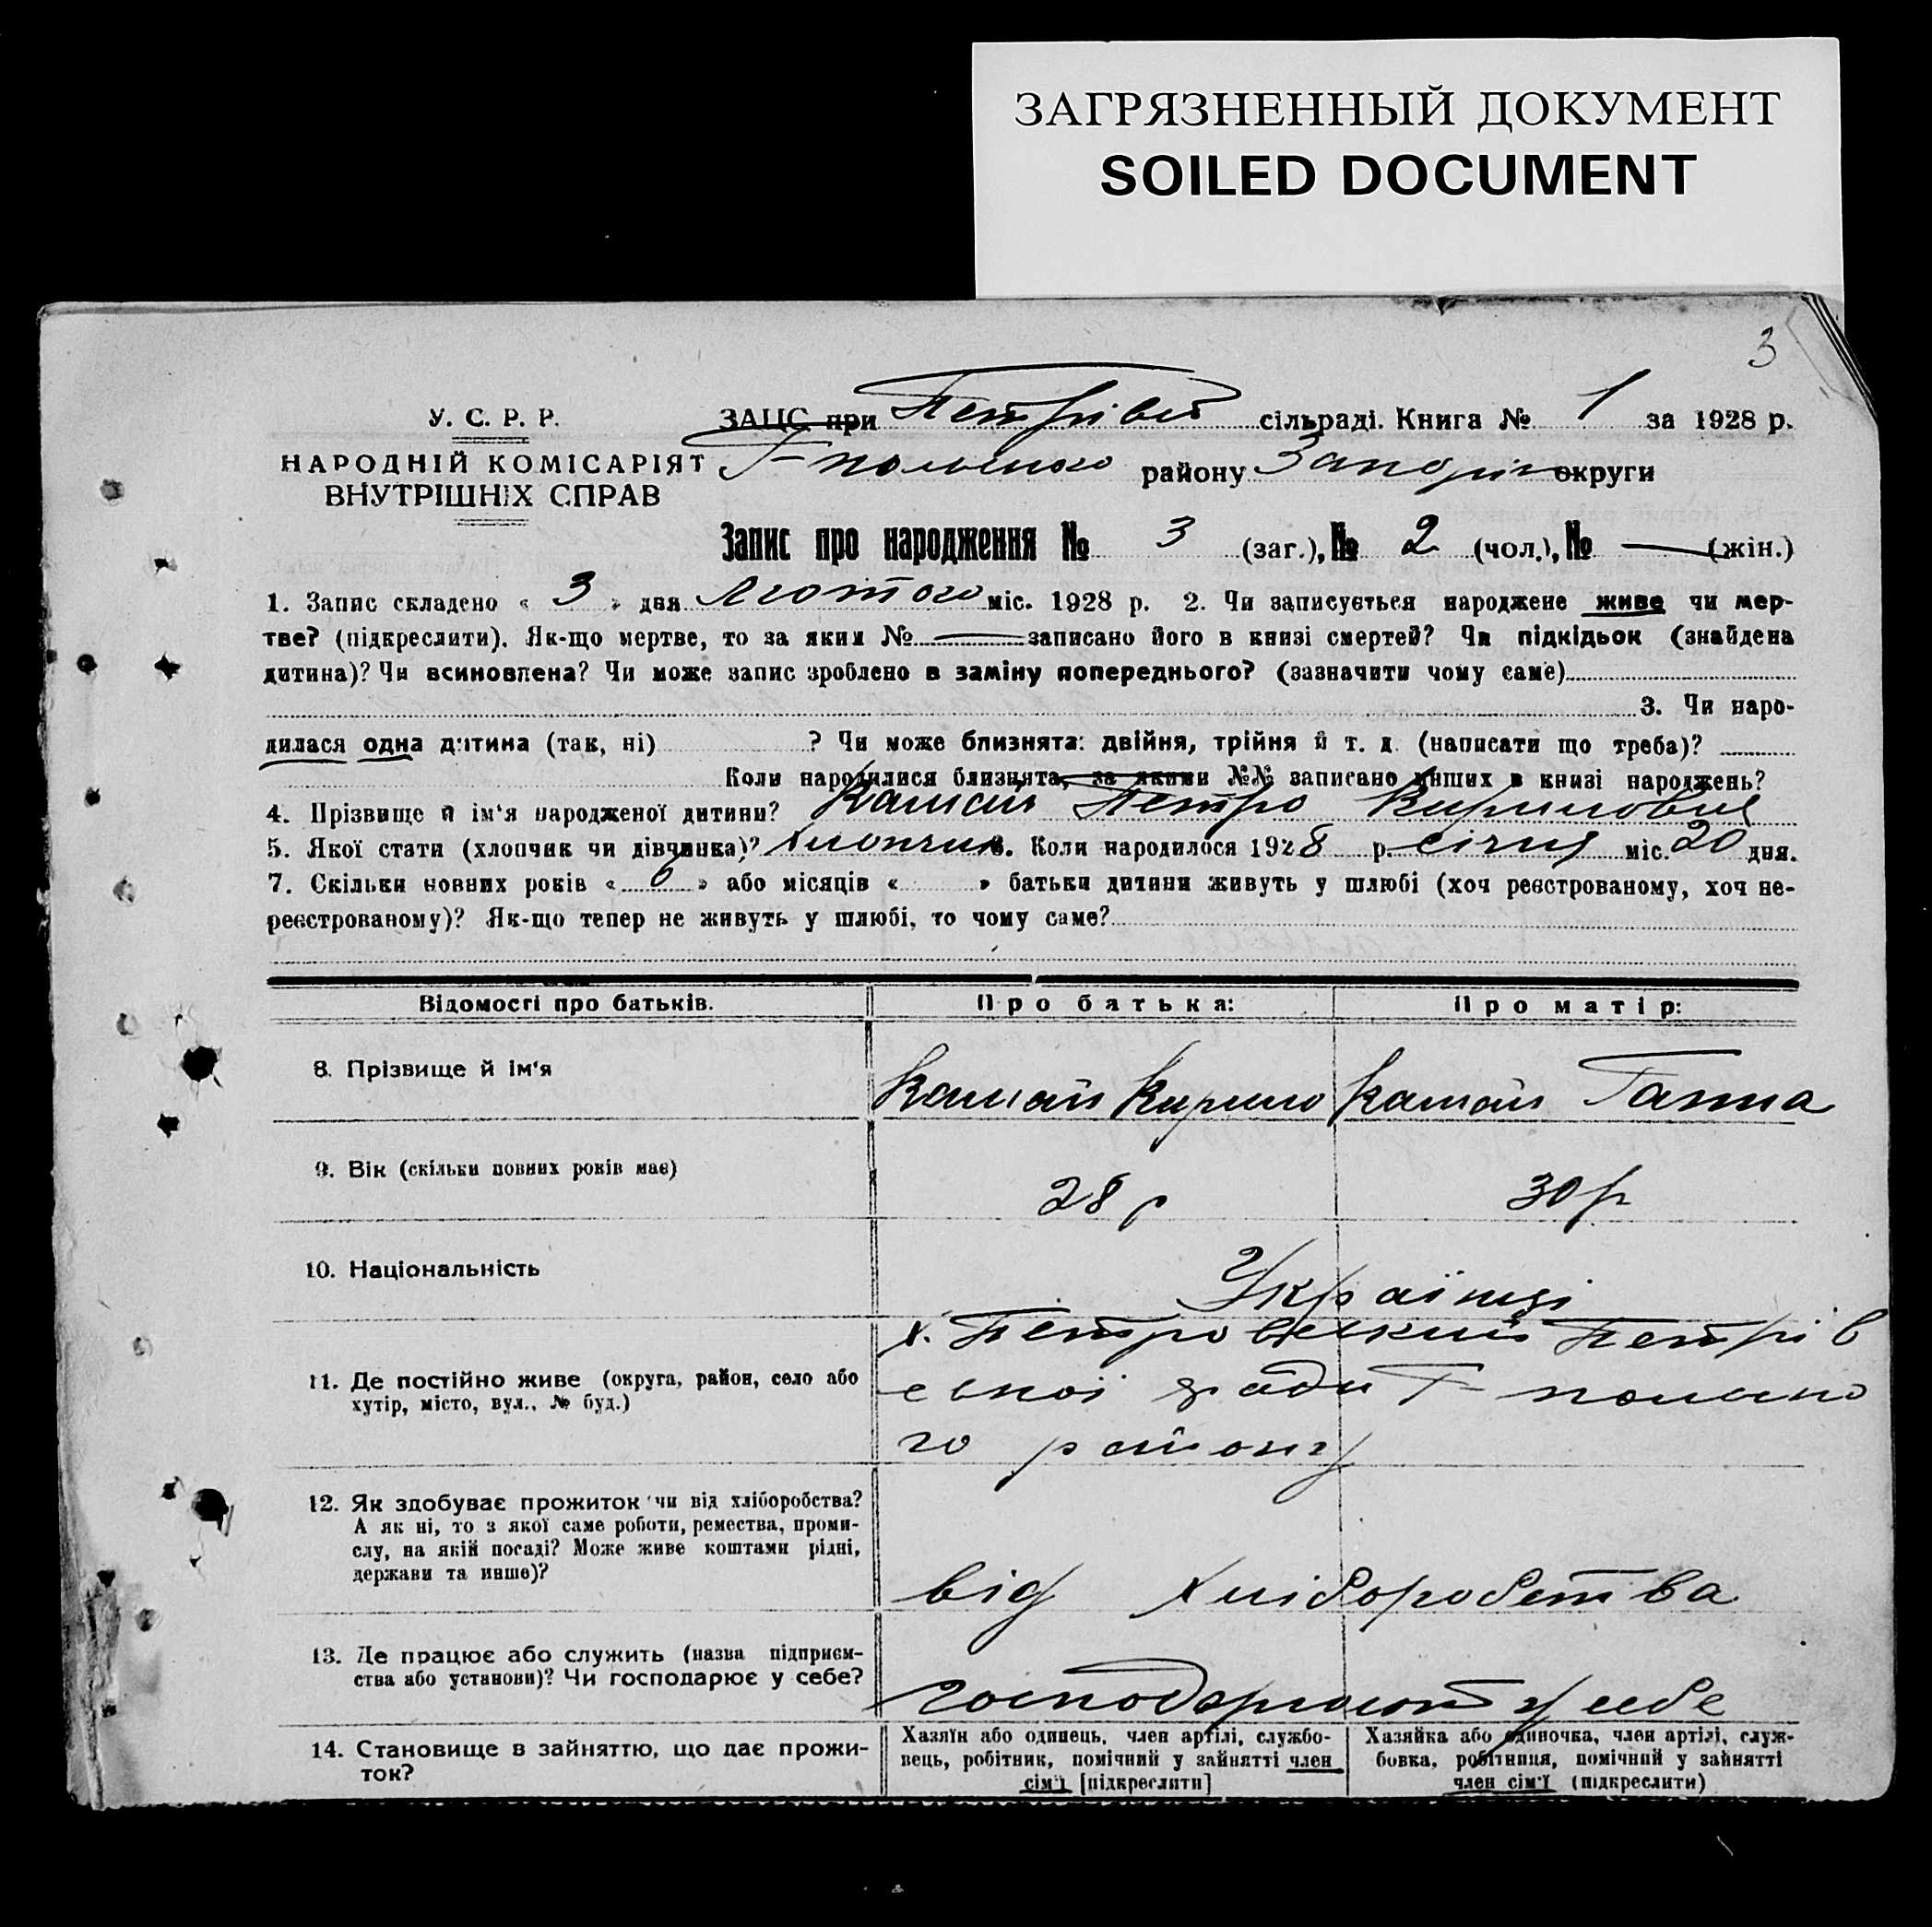 ЗАГРЯЗНЕННЫЙ ДОКУМЕНТ
SOILED DOCUMENT
3
У. С. Р. Р.
НАРОДНІЙ КОМІСАРІЯТ
ВНУТРІШНІХ СПРАВ
ЗАЦС при Петрівсь сільраді. Книга № 1 за 1928 р.
району Запоріж округи
Запис про народження № 3 (заг.), № 2 (чол.), № — (жін.)
1. Запис складено « 3 » дня Лютого міс. 1928 р. 2. Чи записується народжене живе чи мер-
тве? (підкреслити). Як-що мертве, то за яким № — записано його в книзі смертей? Чи підкідьок (знайдена
дитина)? Чи всиновлена? Чи може запис зроблено в заміну попереднього? (зазначити чому саме)
3. Чи наро-
дилася одна дитина (так, ні) ? Чи може близнята: двійня, трійня й т. д. (написати що треба)?
Коли народилися близнята, за якими №№ записано инших в книзі народжень?
4. Прізвище й ім'я народженої дитини? Камай Петро Кирилович
5. Якої стати (хлопчик чи дівчинка)? Хлопчик 6. Коли народилося 1928 р. січня міс. 20 дня.
7. Скільки повних років « 6 » або місяців « » батьки дитини живуть у шлюбі (хоч реєстрованому, хоч не-
реєстрованому)? Як-що тепер не живуть у шлюбі, то чому саме?
Відомості про батьків. Про батька: Про матір:
8. Прізвище й ім'я Камай Кирило Камай Ганна
9. Вік (скільки повних років має) 28 р 30 р
10. Національність Українці
11. Де постійно живе (округа, район, село або
хутір, місто, вул., № буд.)
х. Петровський Петрів
ської ради Г-польско
го району
12. Як здобуває прожиток чи від хліборобства?
А як ні, то з якої саме роботи, ремества, проми-
слу, на якій посаді? Може живе коштами рідні,
держави та инше)?
від хліборобства
13. Де працює або служить (назва підприєм-
ства або установи)? Чи господарює у себе?
господарюют у себе
14. Становище в зайняттю, що дає прожи-
ток?
Хазяїн або одинець, член артілі, службо-
вець, робітник, помічний у зайнятті член
сім'ї [підкреслити]
Хазяйка або одиночка, член артілі, служ-
бовка, робітниця, помічний у зайнятті
член сім'ї (підкреслити)